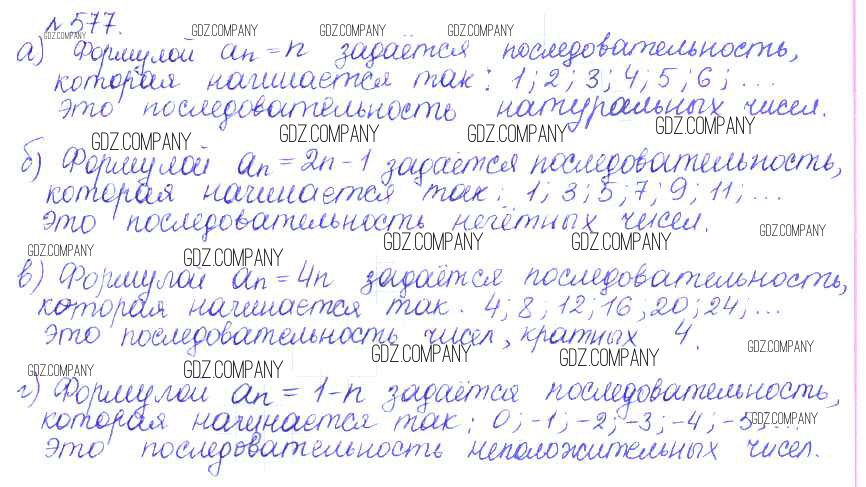 №577.
GDZ.COMPANY GDZ.COMPANY GDZ.COMPANY GDZ.COMPANY
а) Формулой aₙ = n задаётся последовательность,
которая начинается так: 1; 2; 3; 4; 5; 6; ...
Это последовательность натуральных чисел.
GDZ.COMPANY GDZ.COMPANY GDZ.COMPANY GDZ.COMPANY
б) Формулой aₙ = 2n - 1 задаётся последовательность,
которая начинается так: 1; 3; 5; 7; 9; 11; ...
Это последовательность нечётных чисел.
GDZ.COMPANY GDZ.COMPANY GDZ.COMPANY GDZ.COMPANY GDZ.COMPANY
в) Формулой aₙ = 4n задаётся последовательность,
которая начинается так. 4; 8; 12; 16; 20; 24; ...
Это последовательность чисел, кратных 4.
GDZ.COMPANY GDZ.COMPANY GDZ.COMPANY GDZ.COMPANY GDZ.COMPANY
г) Формулой aₙ = 1 - n задаётся последовательность,
которая начинается так: 0; -1; -2; -3; -4; -5; ...
GDZ.COMPANY
Это последовательность неположительных чисел.